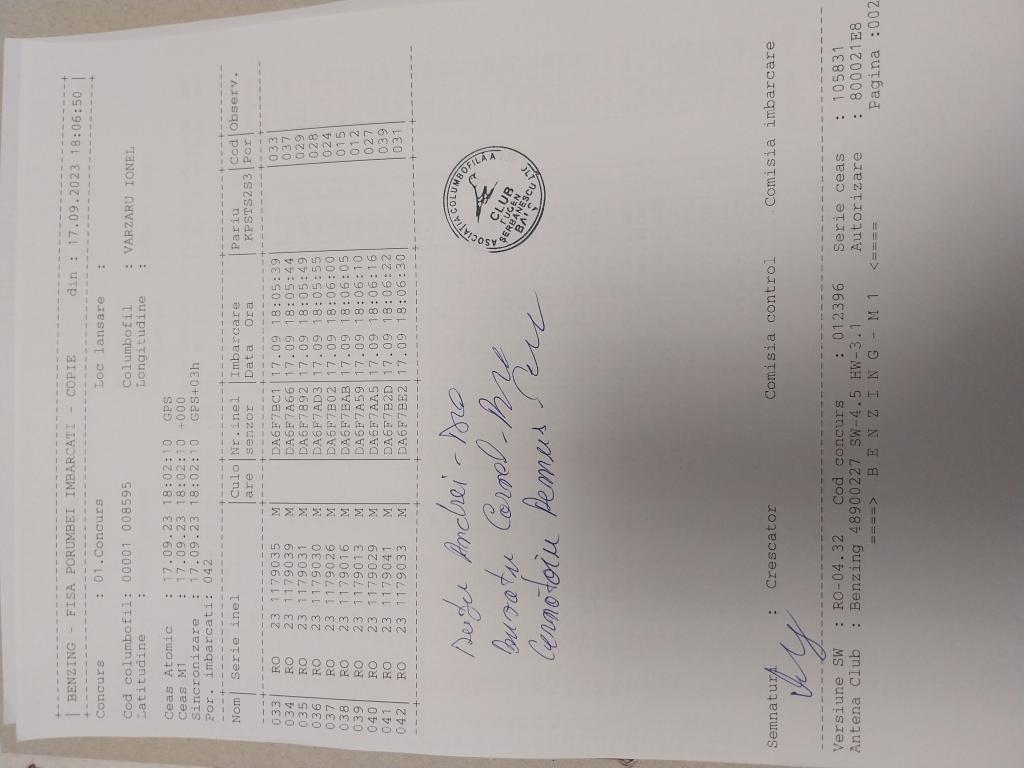 BENZING - FISA PORUMBEI IMBARCATI - COPIE din : 17.09.2023 18:06:50
Concurs : 01.Concurs Loc lansare :
Cod columbofil: 00001 008595 Columbofil : VARZARU IONEL
Latitudine : Longitudine :
Ceas Atomic : 17.09.23 18:02:10 GPS
Ceas M1 : 17.09.23 18:02:10 +000
Sincronizare : 17.09.23 18:02:10 GPS+03h
Por. imbarcati: 042
Nom| Serie inel |Culo|Nr.inel |Imbarcare |Pariu |Cod|Observ.
are |senzor |Data Ora | KPSTS2S3|Por|
033 RO 23 1179035 M DA6F7BC1 17.09 18:05:39 033
034 RO 23 1179039 M DA6F7A66 17.09 18:05:44 037
035 RO 23 1179031 M DA6F7892 17.09 18:05:49 029
036 RO 23 1179030 M DA6F7AD3 17.09 18:05:55 028
037 RO 23 1179026 M DA6F7B02 17.09 18:06:00 024
038 RO 23 1179016 M DA6F7BAB 17.09 18:06:05 015
039 RO 23 1179013 M DA6F7A59 17.09 18:06:10 012
040 RO 23 1179029 M DA6F7AA5 17.09 18:06:16 027
041 RO 23 1179041 M DA6F7B2D 17.09 18:06:22 039
042 RO 23 1179033 M DA6F7BE2 17.09 18:06:30 031
Andrei -
Cornel -
ASOCIATIA COLUMBOFILA A JLT
CLUB
EUGEN
SERBANESCU
BALS
Semnatura : Crescator Comisia control Comisia imbarcare
Versiune SW : RO-04.32 Cod concurs : 012396 Serie ceas : 105831
Antena Club : Benzing 48900227 SW-4.5 HW-3.1 Autorizare : 800021E8
====> B E N Z I N G - M 1 <==== Pagina :002